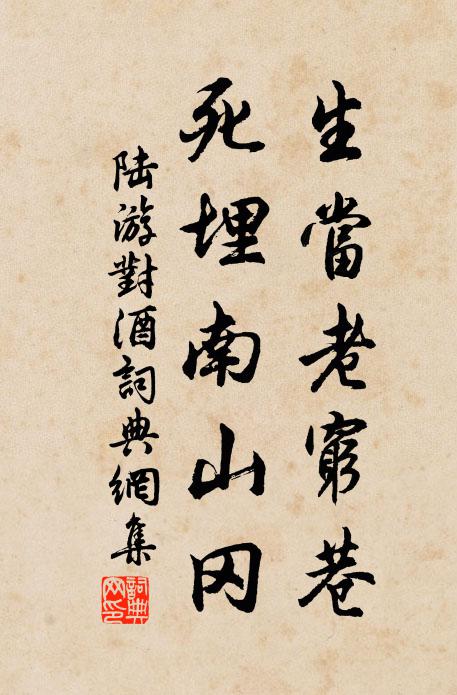 生當老窮巷
死埋南山冈
陸游對酒詞典網集
詞典网印